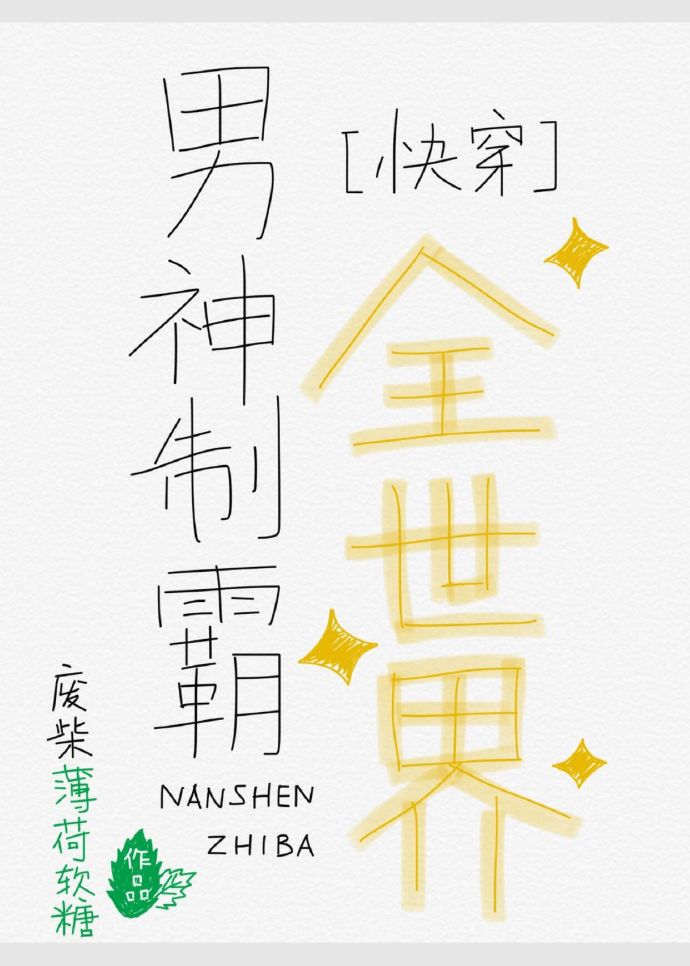 男神制霸
全世界
[快穿]
NANSHEN
ZHIBA
废柴薄荷软糖
作品